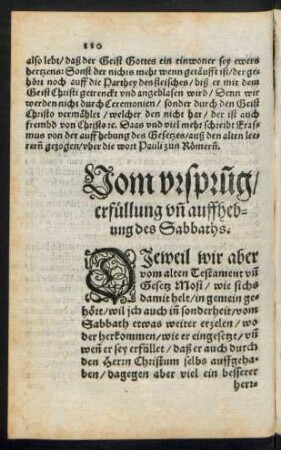 110
also lebt/ daß der Geist Gottes ein einwoner sey ewers
hertzens: Sonst der nichts mehr wenn getäufft ist/ der ge-
hört noch auff die Parthey des fleisches/ biß er mit dem
Geist Christi getrenckt vnd angeblasen wird/ Denn wir
werden nicht durch Ceremonien/ sonder durch den Geist
Christo vermählet/ welcher den nicht hat/ der ist auch
frembd von Christo ꝛc. Daas vnd viel mehr schreibt Eras-
mus von der auffhebung des Gesetzes/ auß den alten lee-
rern̄ gezogen/ vber die wort Pauli zun Römern̄.
Vom vrsprūg/
erfüllung vn̄ auffheb-
ung des Sabbaths.
DJeweil wir aber
vom alten Testament vn̄
Gesetz Mosi/ wie sichs
damit helt/ in gemein ge-
hört/ wil jch auch in̄ sonderheit/ vom
Sabbath etwas weiter erzelen/ wo
der herkommen/ wie er eingesetzt/ vn̄
wen̄ er sey erfüllet/ daß er auch durch
den Herrn Christum selbs auffgeha-
ben/ dagegen aber viel ein besserer
herr-